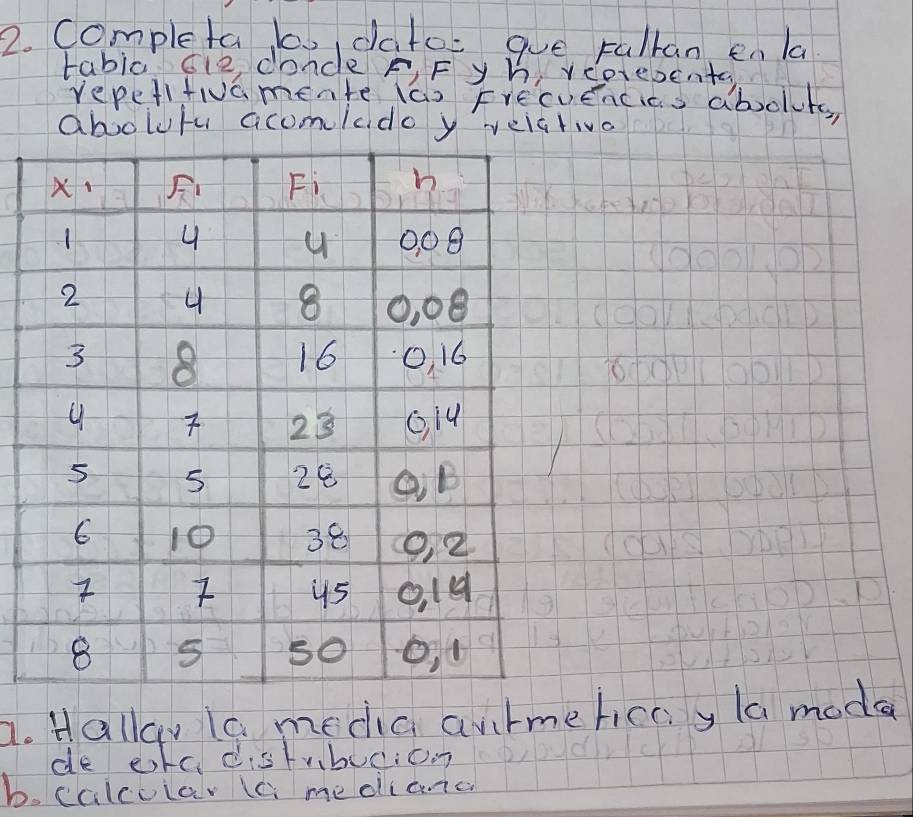 2. Completa los datos que Faltan en la
tabla 612, donde F, F y h, representa
repetitivamente las Frecuencias absoluta,
absoluta acomulado y relativo
xi fi Fi h
1 4 4 0,08
2 4 8 0,08
3 8 16 0,16
4 7 23 0,14
5 5 28 0,1
6 10 38 0,2
7 7 45 0,14
8 5 50 0,1
a. Hallar la media aritmetica y la moda
de esta distribucion
b. calcular la mediana